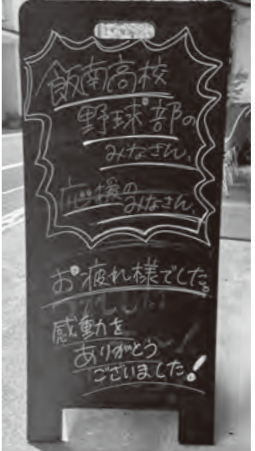 飯南高校
野球部の
みなさん、
応援の
みなさん、
お疲れ様でした。
感動を
ありがとう
ございました!